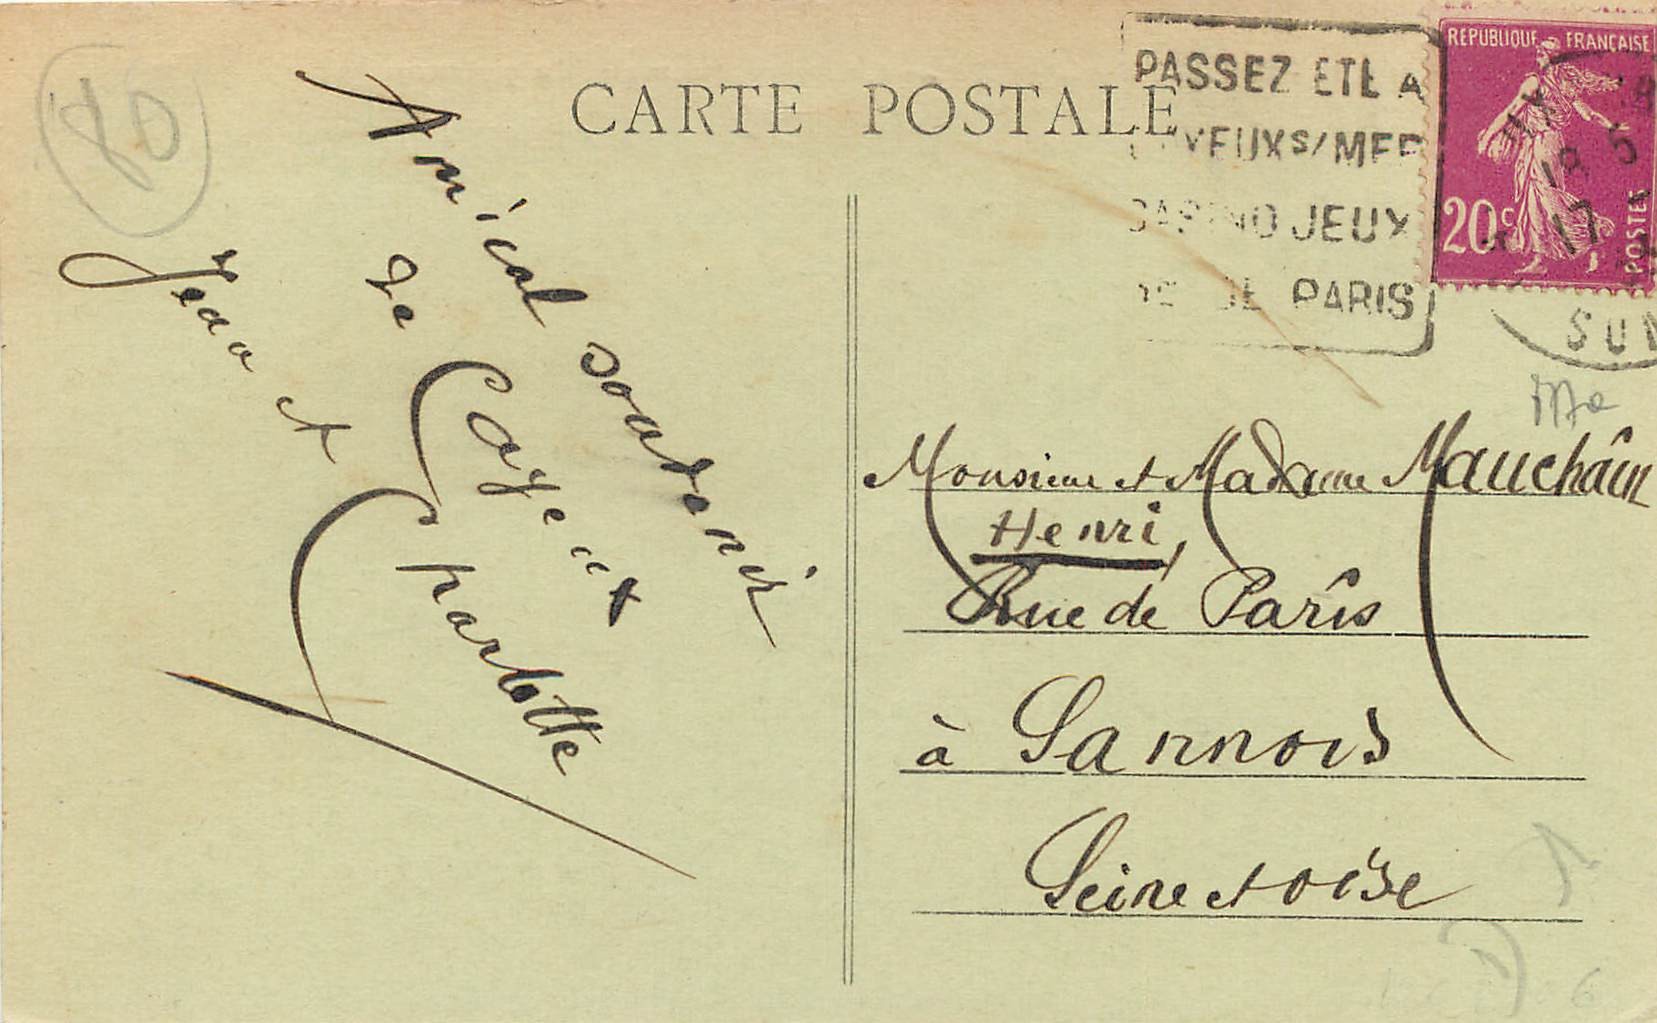 80
CARTE POSTALE
PASSEZ ETE A
YEUX S/MER
CASINO JEUX
DE PARIS
REPUBLIQUE FRANÇAISE
20c
POSTES
17
Amical souvenir
de Cayeux
Jean et Charlotte
Monsieur et Madame Mauchâin
Henri,
Rue de Parîs
à Sannois
Seine et oise